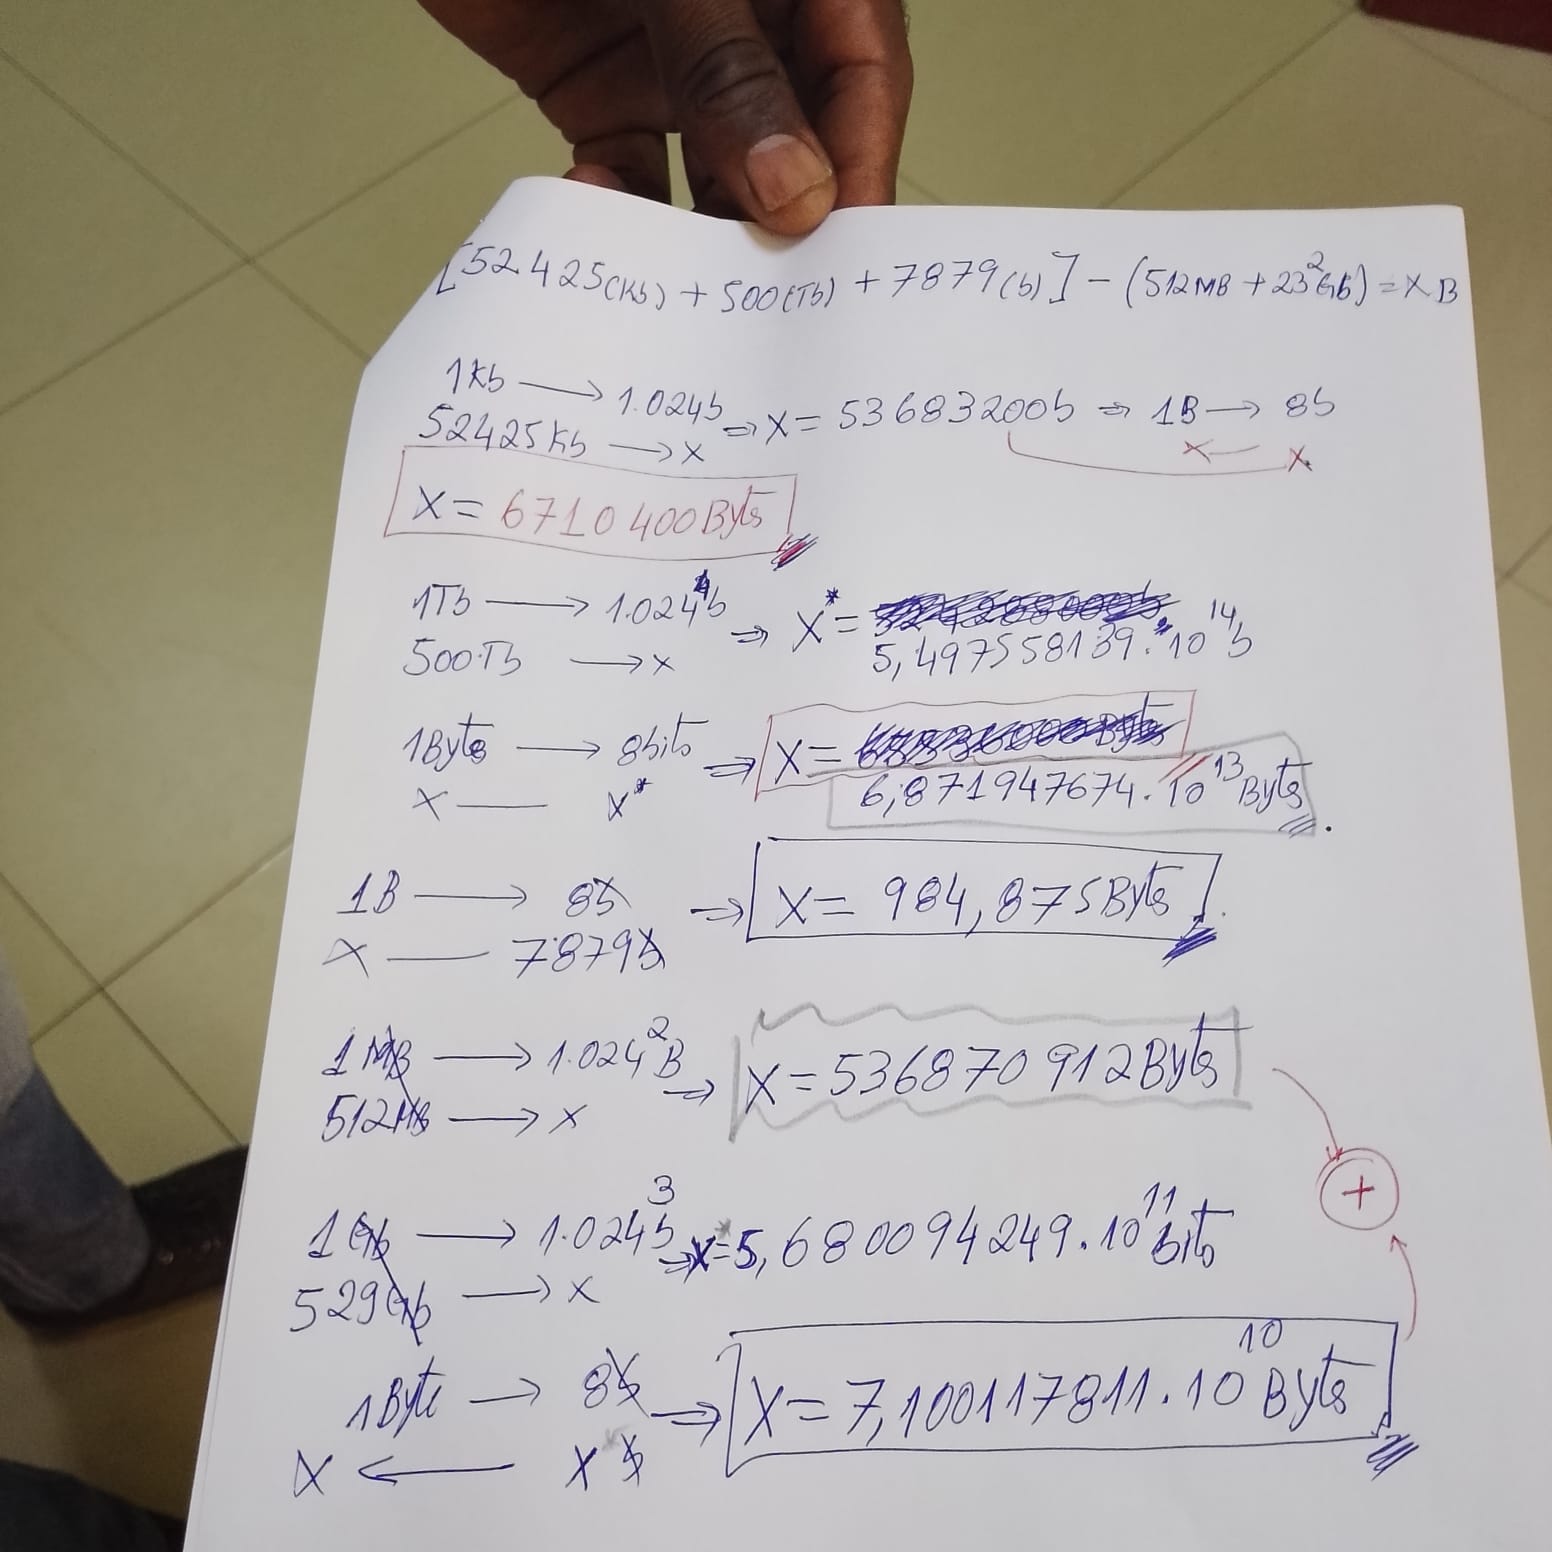 [52.425(Kb) + 500(Tb) + 7879(b)] - (512MB + 23²Gb) = X B
1Kb → 1.024b
52425Kb → x ⇒ x = 53683200b ⇒ 1B → 8b
x ← x
X = 6710400Byts
1Tb → 1.024⁴b
500Tb → x ⇒ X* = 5,497558139.10¹⁴b
1Bytes → 8bits
x — x* ⇒ X = 6,871947674.10¹³Byts
1B → 8b
x — 7879b ⇒ X = 984,875Byts
1MB → 1.024²B
512MB → x ⇒ X = 536870912Byts
+
1Gb → 1.024³b
529Gb → x ⇒ x* = 5,680094249.10¹¹bits
1Byte → 8b
X ← x* b ⇒ X = 7,100117811.10¹⁰Byts